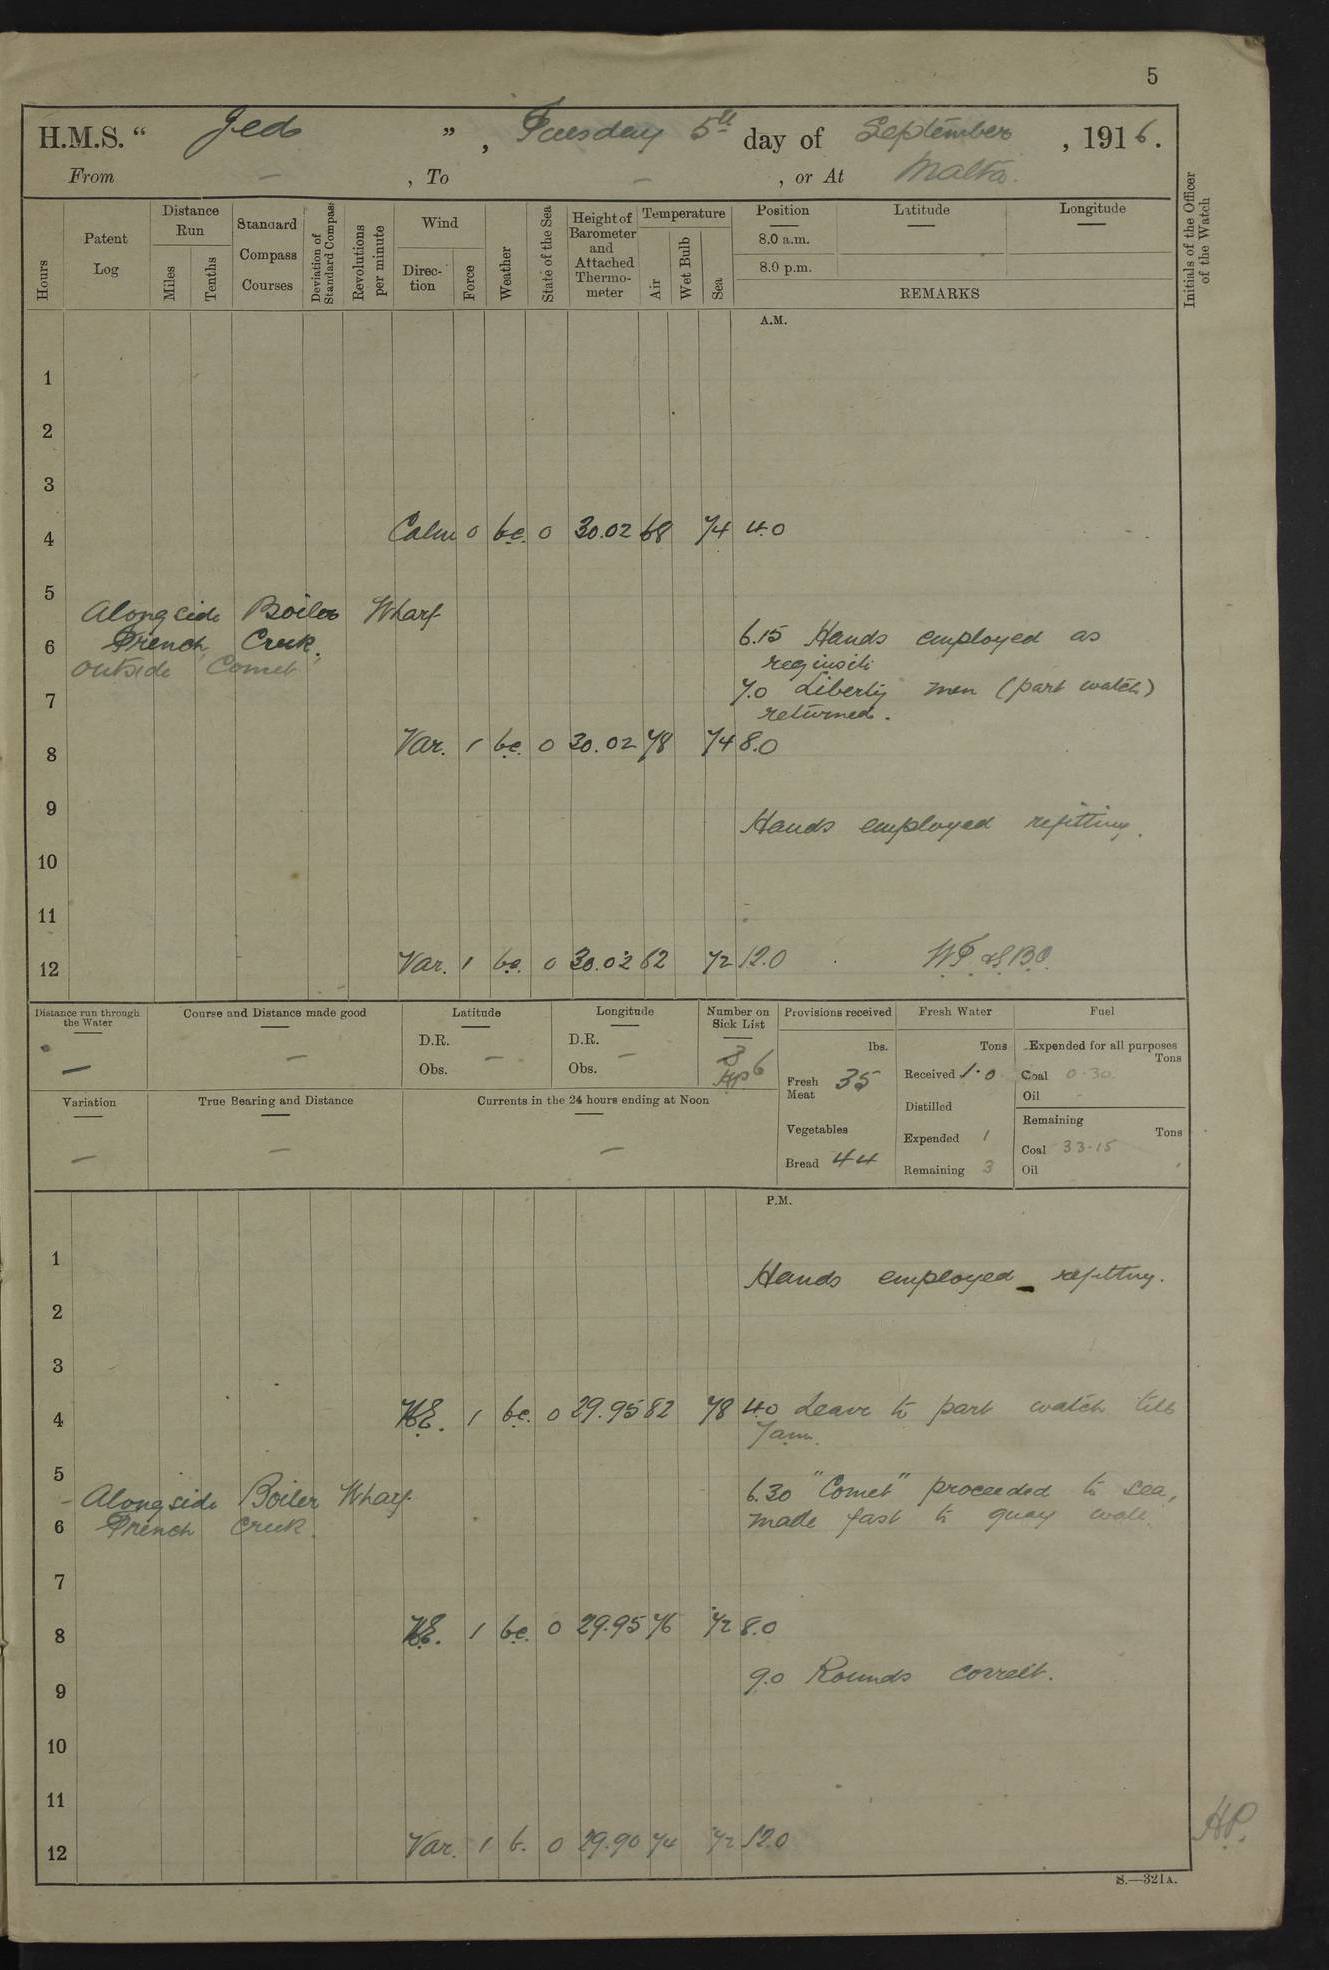 5
H.M.S. “ Jed ” , Tuesday 5th day of September , 1916.
From - , To - , or At Malta.
Hours
Patent Log
Distance Run
Miles
Tenths
Standard Compass Courses
Deviation of Standard Compass
Revolutions per minute
Wind
Direction
Force
Weather
State of the Sea
Height of Barometer and Attached Thermometer
Temperature
Air
Wet Bulb
Sea
Position
8.0 a.m.
8.0 p.m.
Latitude
Longitude
REMARKS
Initials of the Officer of the Watch
A.M.
1
2
3
4 Calm 0 bc. 0 30.02 68 74 4.0
5
Alongside Boiler Wharf
6 French Creek. 6.15 Hands employed as
outside Comet requisite
7 7.0 Liberty men (part watch)
returned.
8 Var. 1 bc. 0 30.02 78 74 8.0
9
Hands employed refitting.
10
11
12 Var. 1 bc. 0 30.02 82 72 12.0
Distance run through the Water
-
Course and Distance made good
-
Latitude
D.R.
Obs. -
Longitude
D.R. -
Obs.
Number on Sick List
Provisions received
lbs.
Fresh Meat 35
Vegetables
Bread 44
Fresh Water
Tons
Received 1.0
Distilled
Expended 1
Remaining 3
Fuel
Expended for all purposes
Tons
Coal 0.30
Oil -
Remaining
Tons
Coal 33.15
Oil
Variation
-
True Bearing and Distance
-
Currents in the 24 hours ending at Noon
-
P.M.
1
Hands employed refitting.
2
3
4 NE. 1 bc. 0 29.95 82 78 4.0 Leave to part watch till
7am.
5
Alongside Boiler Wharf 6.30 "Comet" proceeded to sea,
6 French Creek. made fast to quay wall.
7
8 NE. 1 bc. 0 29.95 76 72 8.0
9.0 Rounds correct.
9
10
11
12 Var. 1 b. 0 29.90 74 72 12.0
H.P.
S.—321A.